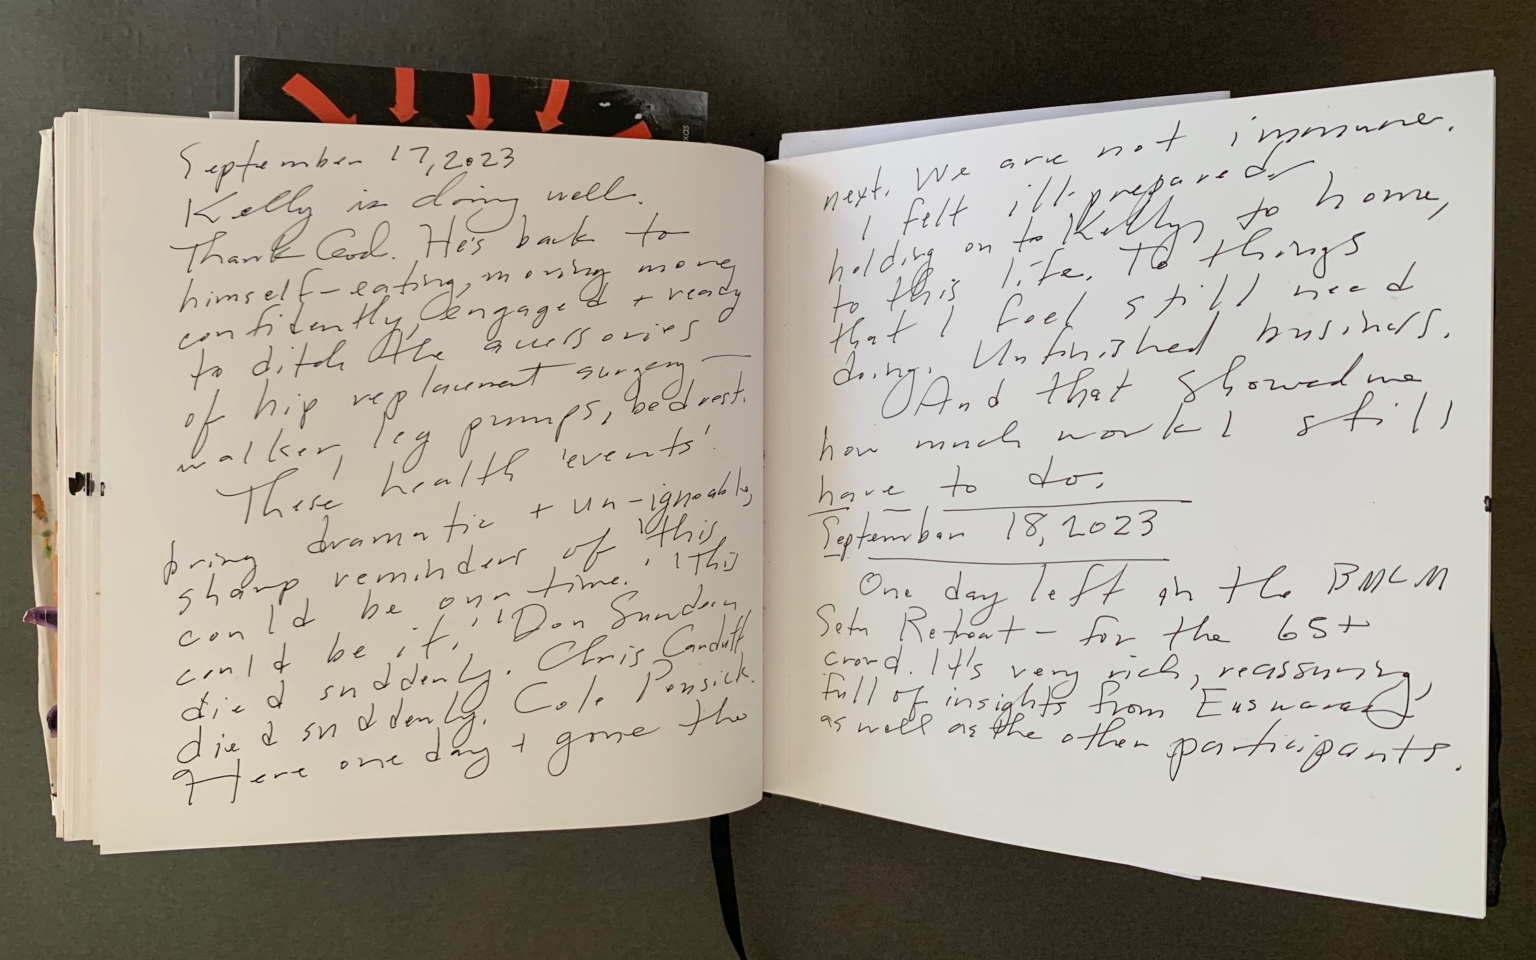 September 17, 2023
Kelly is doing well.
Thank God. He's back to
himself - eating, moving more
confidently, engaged + ready
to ditch the accessories
of hip replacement surgery —
walker, leg pumps, bedrest.
These health 'events'
bring dramatic + un-ignoable,
sharp reminders of 'this
could be our time.' 'This
could be it.' Don
died suddenly. Chris
died suddenly. Cole
Here one day + gone the
next. We are not immune.
I felt ill-prepared
holding on to Kelly, to home,
to this life. To things
that I feel still need
doing. Unfinished business.
And that showed me
how much work I still
have to do.
September 18, 2023
One day left in the BMCM
Retreat - for the 65+
crowd. It's very rich, reassuring,
full of insights from
as well as the other participants.
xas